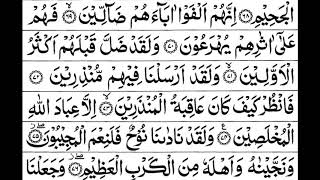 الْجَحِيْمِ ۝٦٨ اِنَّهُمْ اَلْفَوْا اٰبَآءَهُمْ ضَآلِّيْنَ ۝٦٩ فَهُمْ
عَلٰٓى اٰثٰرِهِمْ يُهْرَعُوْنَ ۝٧٠ وَلَقَدْ ضَلَّ قَبْلَهُمْ اَكْثَرُ
الْاَوَّلِيْنَ ۝٧١ وَلَقَدْ اَرْسَلْنَا فِيْهِمْ مُّنْذِرِيْنَ ۝٧٢
فَانْظُرْ كَيْفَ كَانَ عَاقِبَةُ الْمُنْذَرِيْنَ ۝٧٣ اِلَّا عِبَادَ اللّٰهِ
الْمُخْلَصِيْنَ ۝٧٤ وَلَقَدْ نَادٰىنَا نُوْحٌ فَلَنِعْمَ الْمُجِيْبُوْنَ ۝٧٥
وَنَجَّيْنٰهُ وَاَهْلَهٗ مِنَ الْكَرْبِ الْعَظِيْمِ ۝٧٦ وَجَعَلْنَا